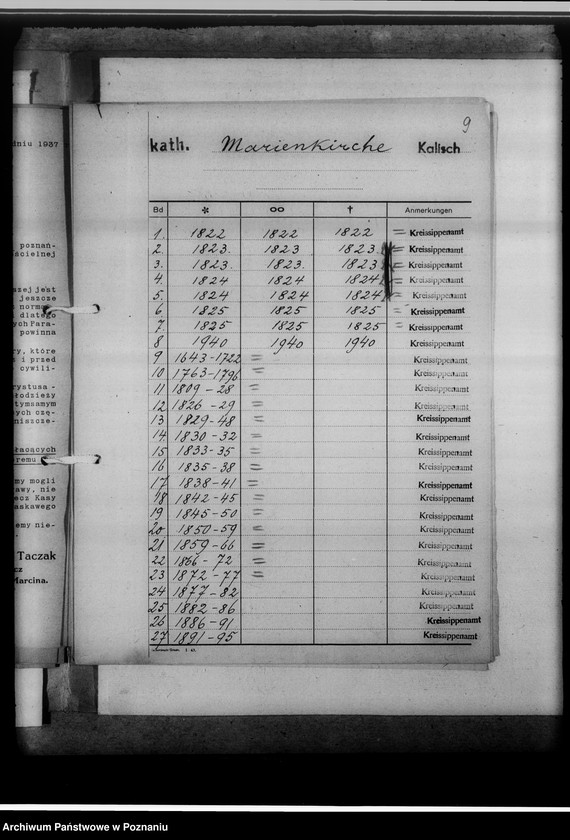 dniu 1937
poznań-
ścielnej
szej jest
jeszcze
dlatego
ych Para-
powinna
ry, które
i przed
cywili-
rystusa -
łodzieży
tymsamym
ych czę-
niszcze-
my mogli
awy, nie
ecz Kasy
askawego
emy nie-
Taczak
cz
Marcina.
9
kath. Marienkirche Kalisch
Bd * ∞ † Anmerkungen
1. 1822 1822 1822 = Kreissippenamt
2. 1823. 1823 1823. = Kreissippenamt
3. 1823. 1823. 1823 = Kreissippenamt
4. 1824 1824 1824 = Kreissippenamt
5. 1824 1824 1824 = Kreissippenamt
6 1825 1825 1825 = Kreissippenamt
7. 1825 1825 1825 = Kreissippenamt
8 1940 1940 1940 Kreissippenamt
9 1643-1722 = Kreissippenamt
10 1763-1796 = Kreissippenamt
11 1809-28 = Kreissippenamt
12 1826-29 = Kreissippenamt
13 1829-48 = Kreissippenamt
14 1830-32 = Kreissippenamt
15 1833-35 = Kreissippenamt
16 1835-38 = Kreissippenamt
17 1838-41 = Kreissippenamt
18 1842-45 = Kreissippenamt
19 1845-50 = Kreissippenamt
20 1850-59 = Kreissippenamt
21 1859-66 = Kreissippenamt
22 1866-72 = Kreissippenamt
23 1872-77 = Kreissippenamt
24 1877-82 Kreissippenamt
25 1882-86 Kreissippenamt
26 1886-91 Kreissippenamt
27 1891-95 Kreissippenamt
Archiwum Państwowe w Poznaniu